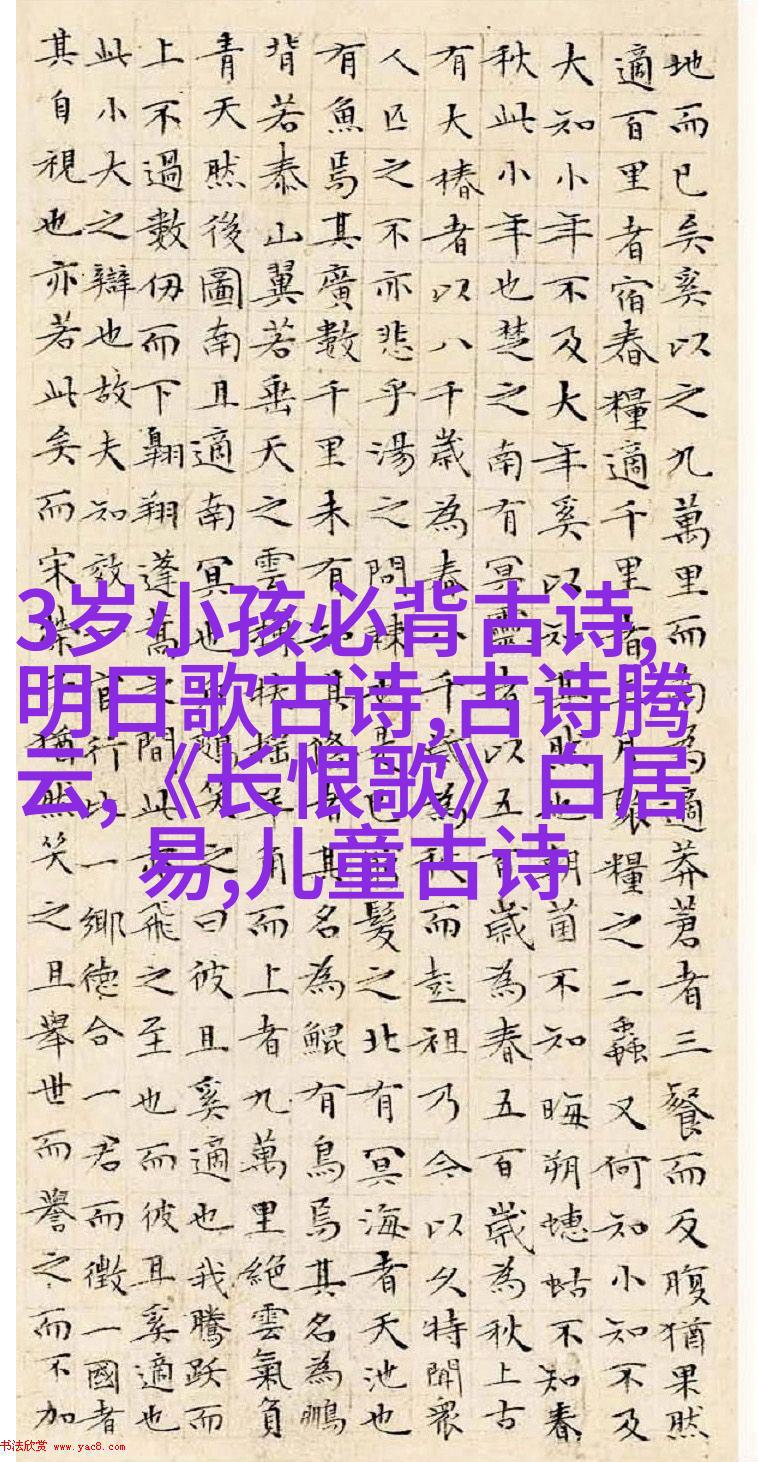 地而已矣奚以之九萬里而南為適莽蒼者三餐而反腹猶果然
適百里者宿舂糧適千里者三月聚糧之二蟲又何知小知不及
大知小年不及大年奚以知其然也朝菌不知晦朔蟪蛄不知春
秋此小年也楚之南有冥靈者以五百歲為春五百歲為秋上古
有大椿者以八千歲為春八千歲為秋而彭祖乃今以久特聞衆
人匹之不亦悲乎湯之問棘也是已窮髮之北有冥海者天池也
有魚焉其廣數千里未有知其脩者其名為鯤有鳥焉其名為鵬
背若泰山翼若垂天之雲摶扶搖羊角而上者九萬里絕雲氣負
青天然後圖南且適南冥也鷃笑之曰彼且奚適也我騰躍而
上不過數仞而下翱翔蓬蒿之間此亦飛之至也而彼且奚適也
此小大之辯也故夫知效官行比一鄉德合一君而徵一國者
其自視也亦若此矣而宋榮子猶然笑之且舉世而譽之而不加
3岁小孩必背古诗,
明日歌古诗,古诗腾
云,《长恨歌》白居
易,儿童古诗
书法欣赏 www.yac8.com